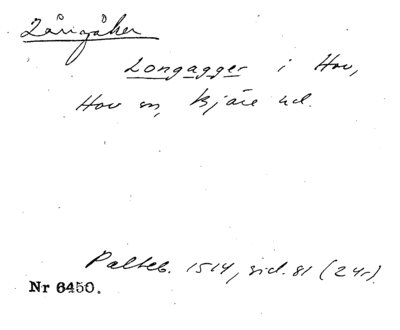 Långåker
Longagger i Hov,
Hov sn, Bjäre hd.
Palteb. 1514, sid. 81 (24r).
Nr 6450.